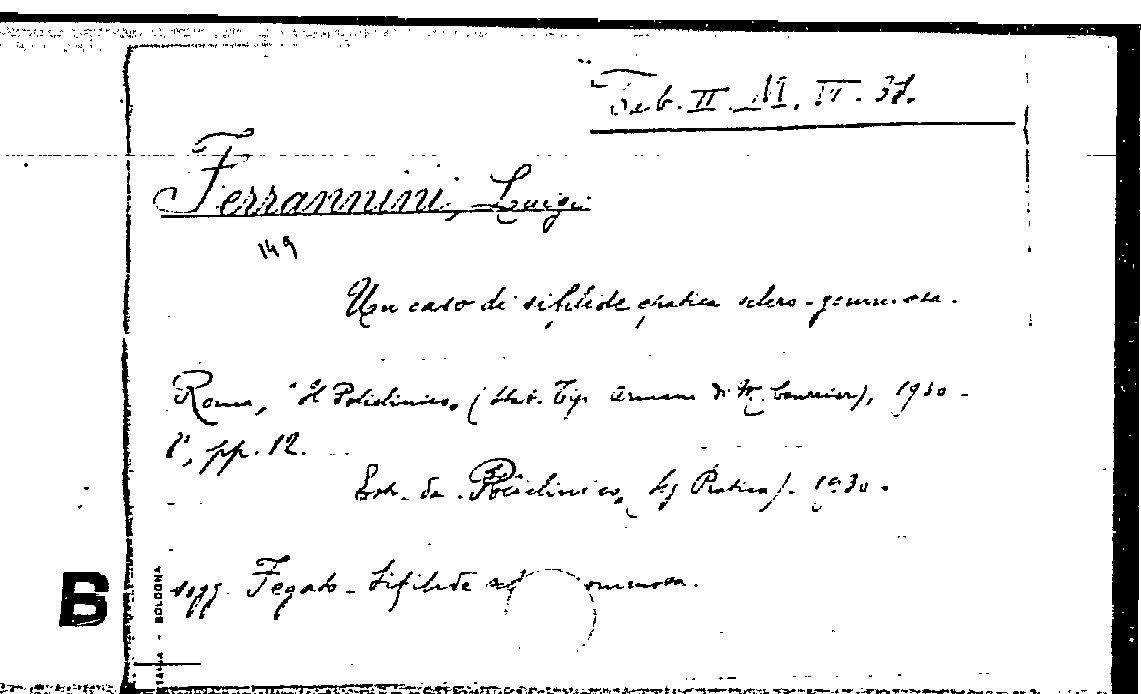 Tab. II. M. IV. 37.
Ferrannini, Luigi
149
Un caso di sifilide epatica sclero-gommosa.
Roma, "Il Policlinico" (Stab. Tip. Armani di M. Courrier), 1930 -
8°, pp. 12.
Estr. da "Policlinico" (Sez. Pratica). 1930.
sogg. Fegato - Sifilide ommosa.
B
BOLOGNA